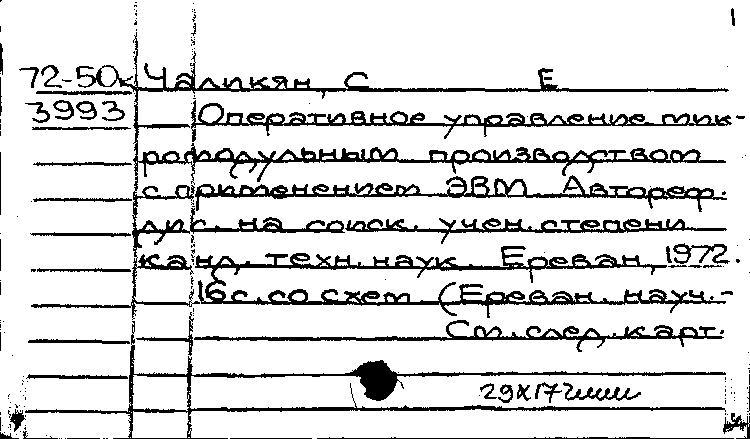 72-50к Чаликян, С Е
3993 Оперативное управление мик-
ромодульным производством
с применением ЭВМ. Автореф.
дис. на соиск. учен. степени
канд. техн. наук. Ереван, 1972.
16 с. со схем (Ереван. науч.-
См. след. карт.
29X17 2мми